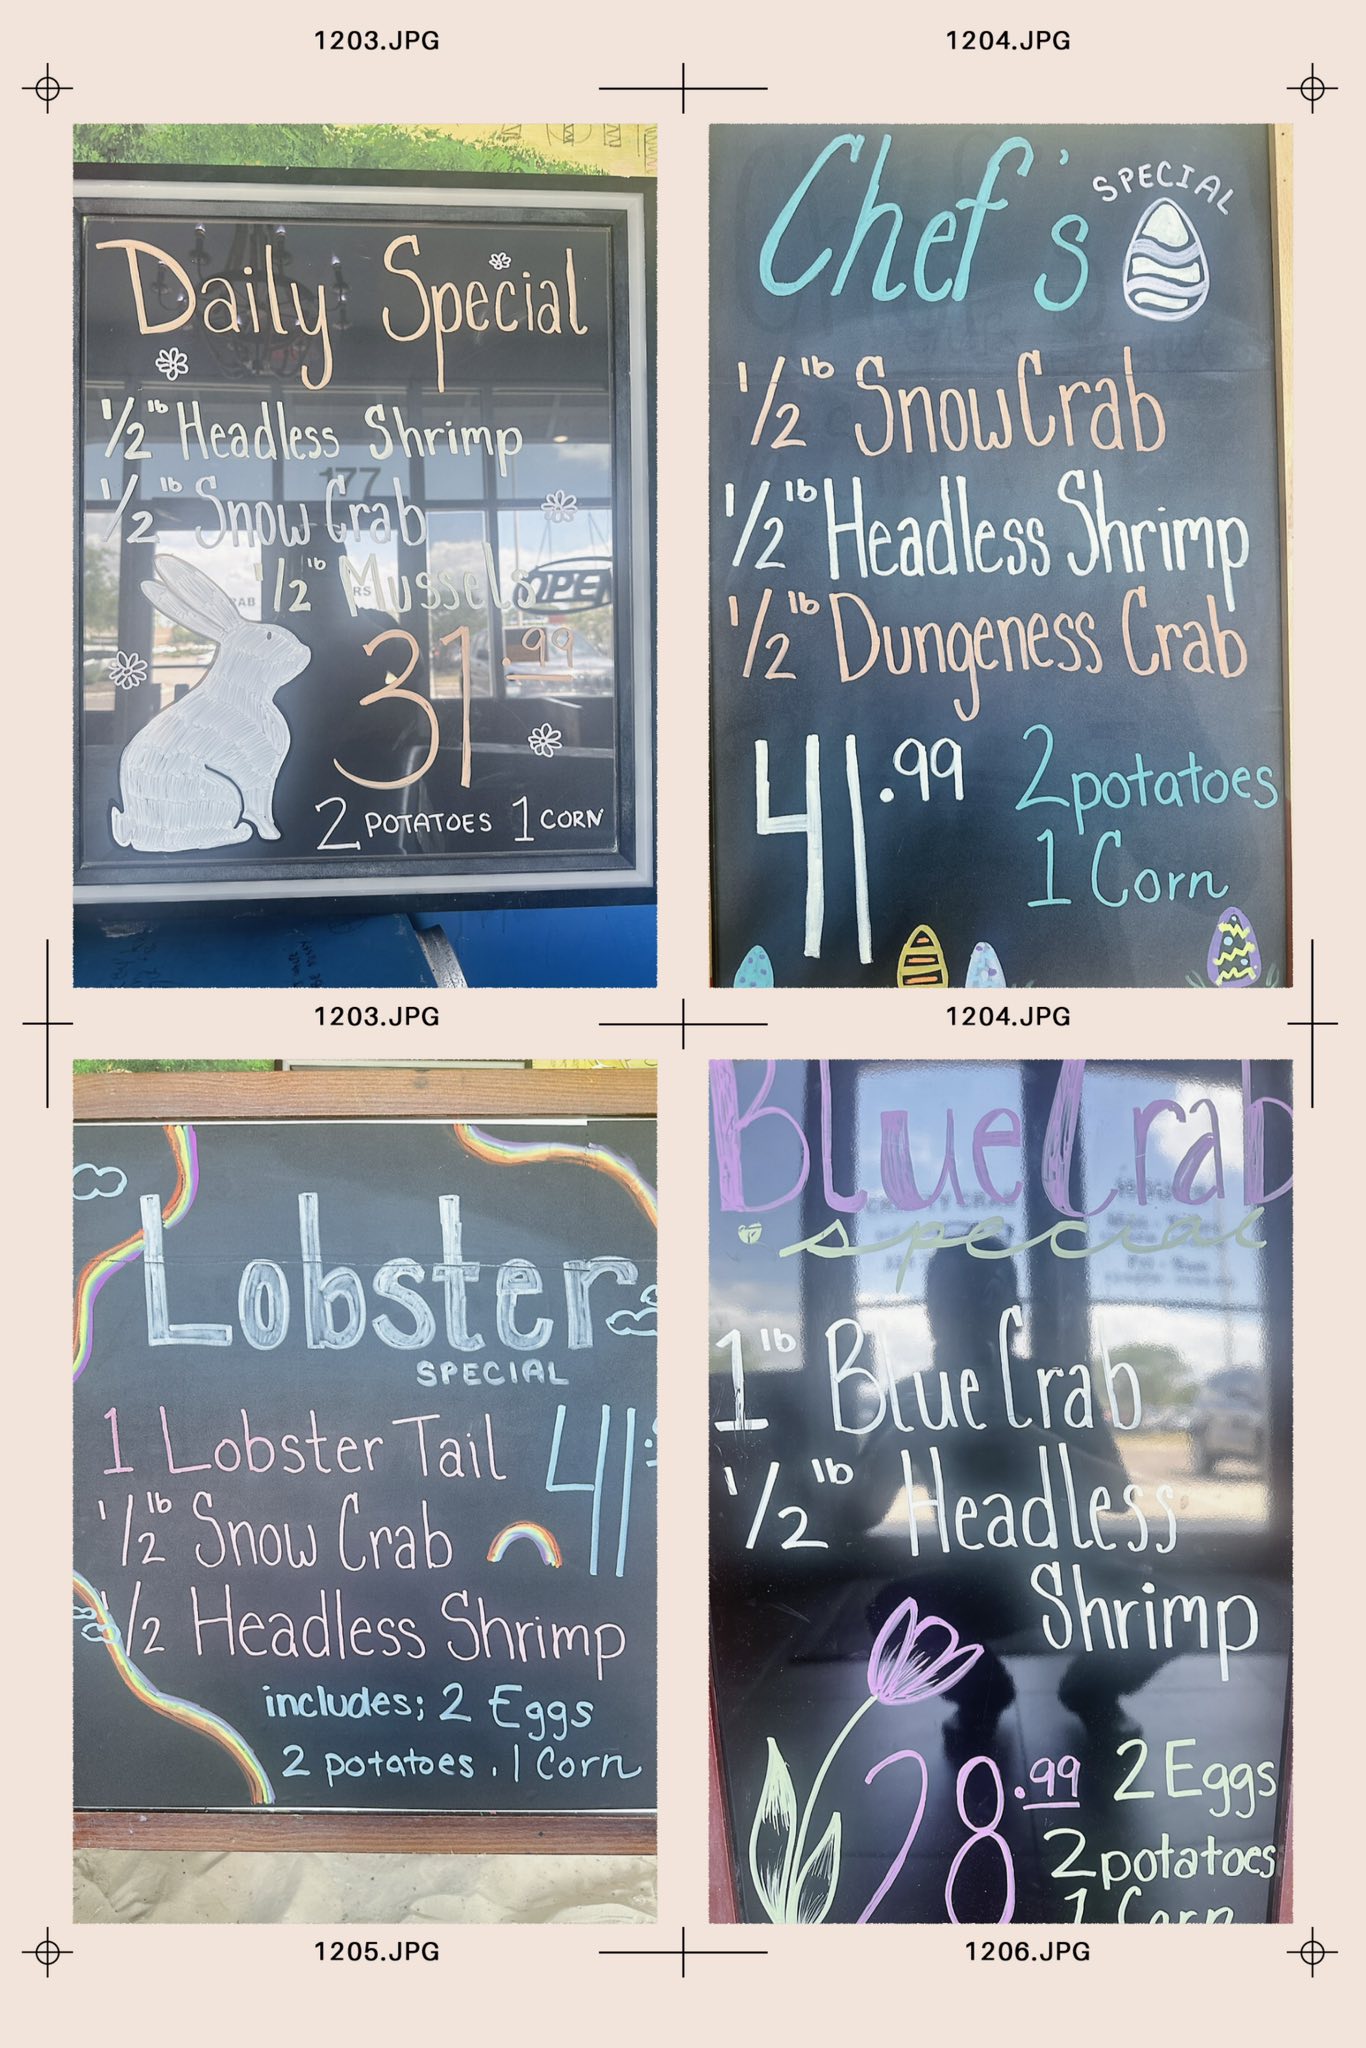 1203.JPG
1204.JPG
Daily Special
1/2 lb Headless Shrimp
1/2 lb Snow Crab
1/2 lb Mussels
31.99
2 POTATOES 1 CORN
177
OPEN
Chef's SPECIAL
1/2 lb Snow Crab
1/2 lb Headless Shrimp
1/2 lb Dungeness Crab
41.99
2 potatoes
1 Corn
1203.JPG
1204.JPG
Lobster
SPECIAL
1 Lobster Tail
41.
1/2 lb Snow Crab
1/2 Headless Shrimp
includes; 2 Eggs
2 potatoes . 1 Corn
Blue Crab
special
1 lb Blue Crab
1/2 lb Headless
Shrimp
28.99
2 Eggs
2 potatoes
1 Corn
1205.JPG
1206.JPG